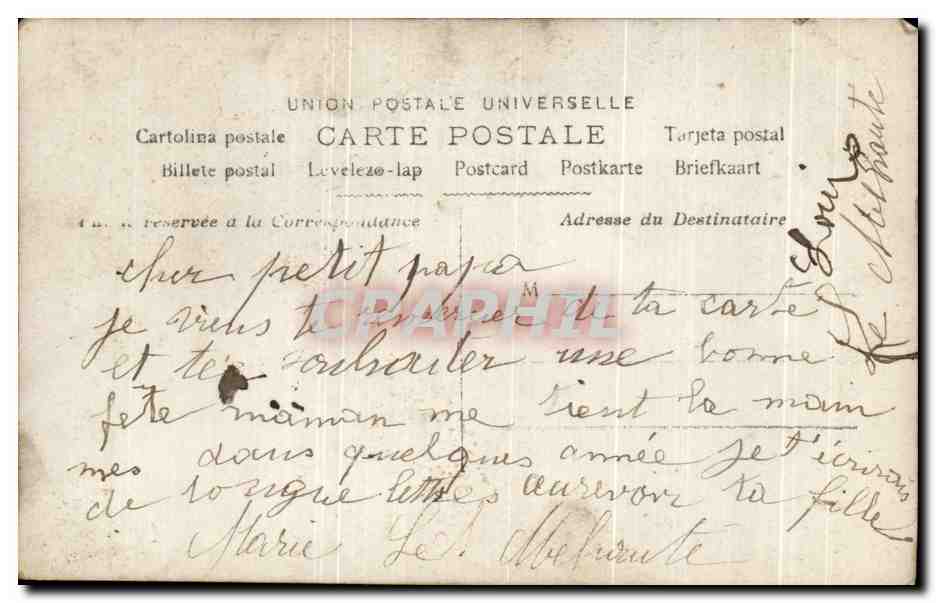 UNION POSTALE UNIVERSELLE
Cartolina postale CARTE POSTALE Tarjeta postal
Billete postal Levelezo-lap Postcard Postkarte Briefkaart
réservée à la Correspondance Adresse du Destinataire
cher petit papa
M
je viens te remercier de ta carte
et te souhaiter une bonne
fete maman me tient la main
mes dans quelques année je t'écrirais
de longue lettres aurevoir ta fille
Marie Le
Louis
Le
CPAPHIL